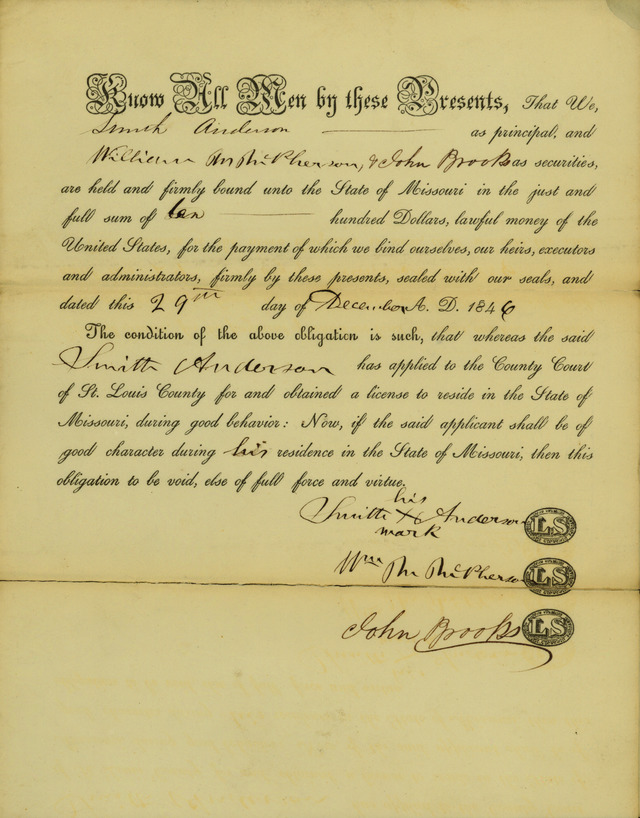 Know All Men by these Presents, That We,
Smith Anderson as principal, and
William M McPherson, & John Brooks as securities,
are held and firmly bound unto the State of Missouri in the just and
full sum of ten hundred Dollars, lawful money of the
United States, for the payment of which we bind ourselves, our heirs, executors
and administrators, firmly by these presents, sealed with our seals, and
dated this 29th day of December A. D. 1846
The condition of the above obligation is such, that whereas the said
Smith Anderson has applied to the County Court
of St. Louis County for and obtained a license to reside in the State of
Missouri, during good behavior: Now, if the said applicant shall be of
good character during his residence in the State of Missouri, then this
obligation to be void, else of full force and virtue.
his
Smith X Anderson LS
mark
Wm M McPherson LS
John Brooks LS